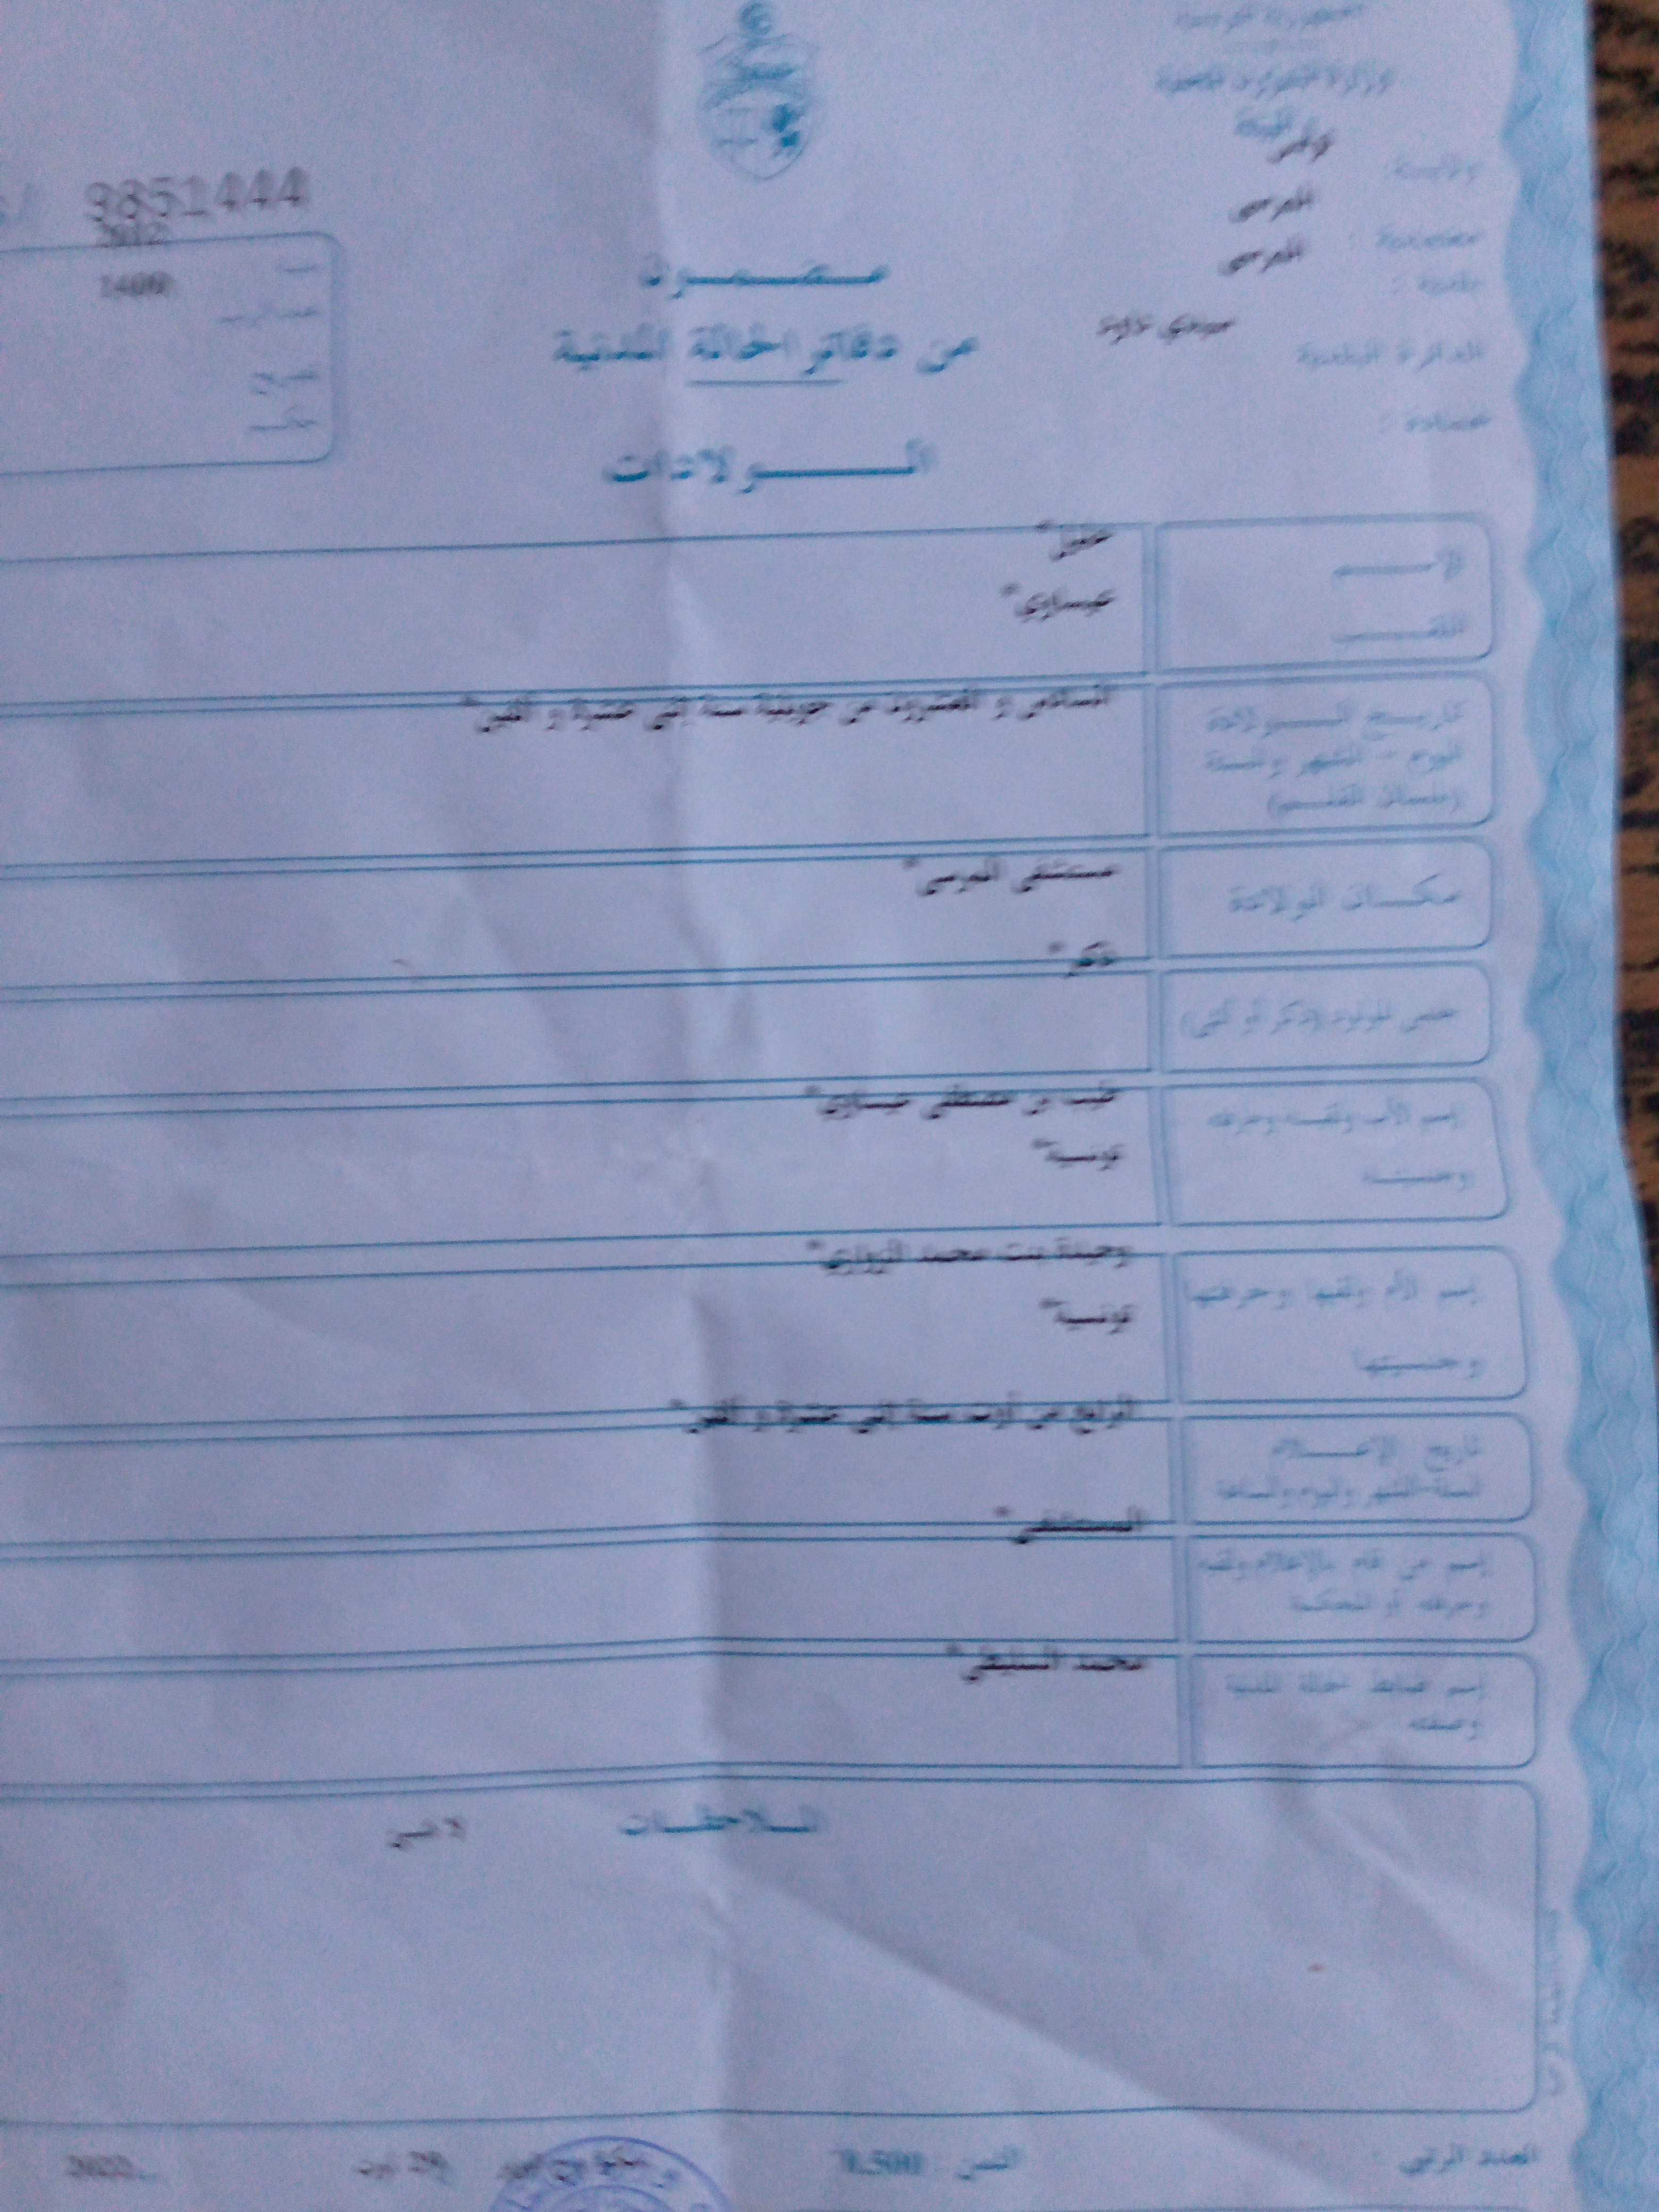 الجمهورية التونسية
وزارة الشؤون المحلية
والبيئة
ولاية: تونس
معتمدية: المرسى
بلدية: المرسى
الدائرة البلدية سيدي داود
عمادة:
9851444
2012
سنة
1400
عدد الرسم
تصريح
حكم
مضمون
من دفاتر الحالة المدنية
الولادات
الإسم
اللقب عيساوي*
تاريخ الولادة السادس و العشرون من جويلية سنة إثني عشرة و ألفين*
اليوم - الشهر والسنة
(بلسان القلم)
مكان الولادة مستشفى المرسى*
جنس المولود (ذكر أو أنثى) ذكر*
إسم الأب ولقبه وحرفته بن مصطفى عيساوي*
وجنسيته تونسية*
إسم الأم ولقبها وحرفتها وحيدة بنت محمد الزواري*
وجنسيتها تونسية*
تاريخ الإعلام الرابع من أوت سنة إثني عشرة و ألفين*
السنة-الشهر واليوم والساعة
إسم من قام بالإعلام ولقبه المستشفى*
وحرفته أو المحكمة
إسم ضابط الحالة المدنية محمد
وصفته
الملاحظات
لا شيئ
العدد الرتبي
الثمن 0.500
29 أوت
2022